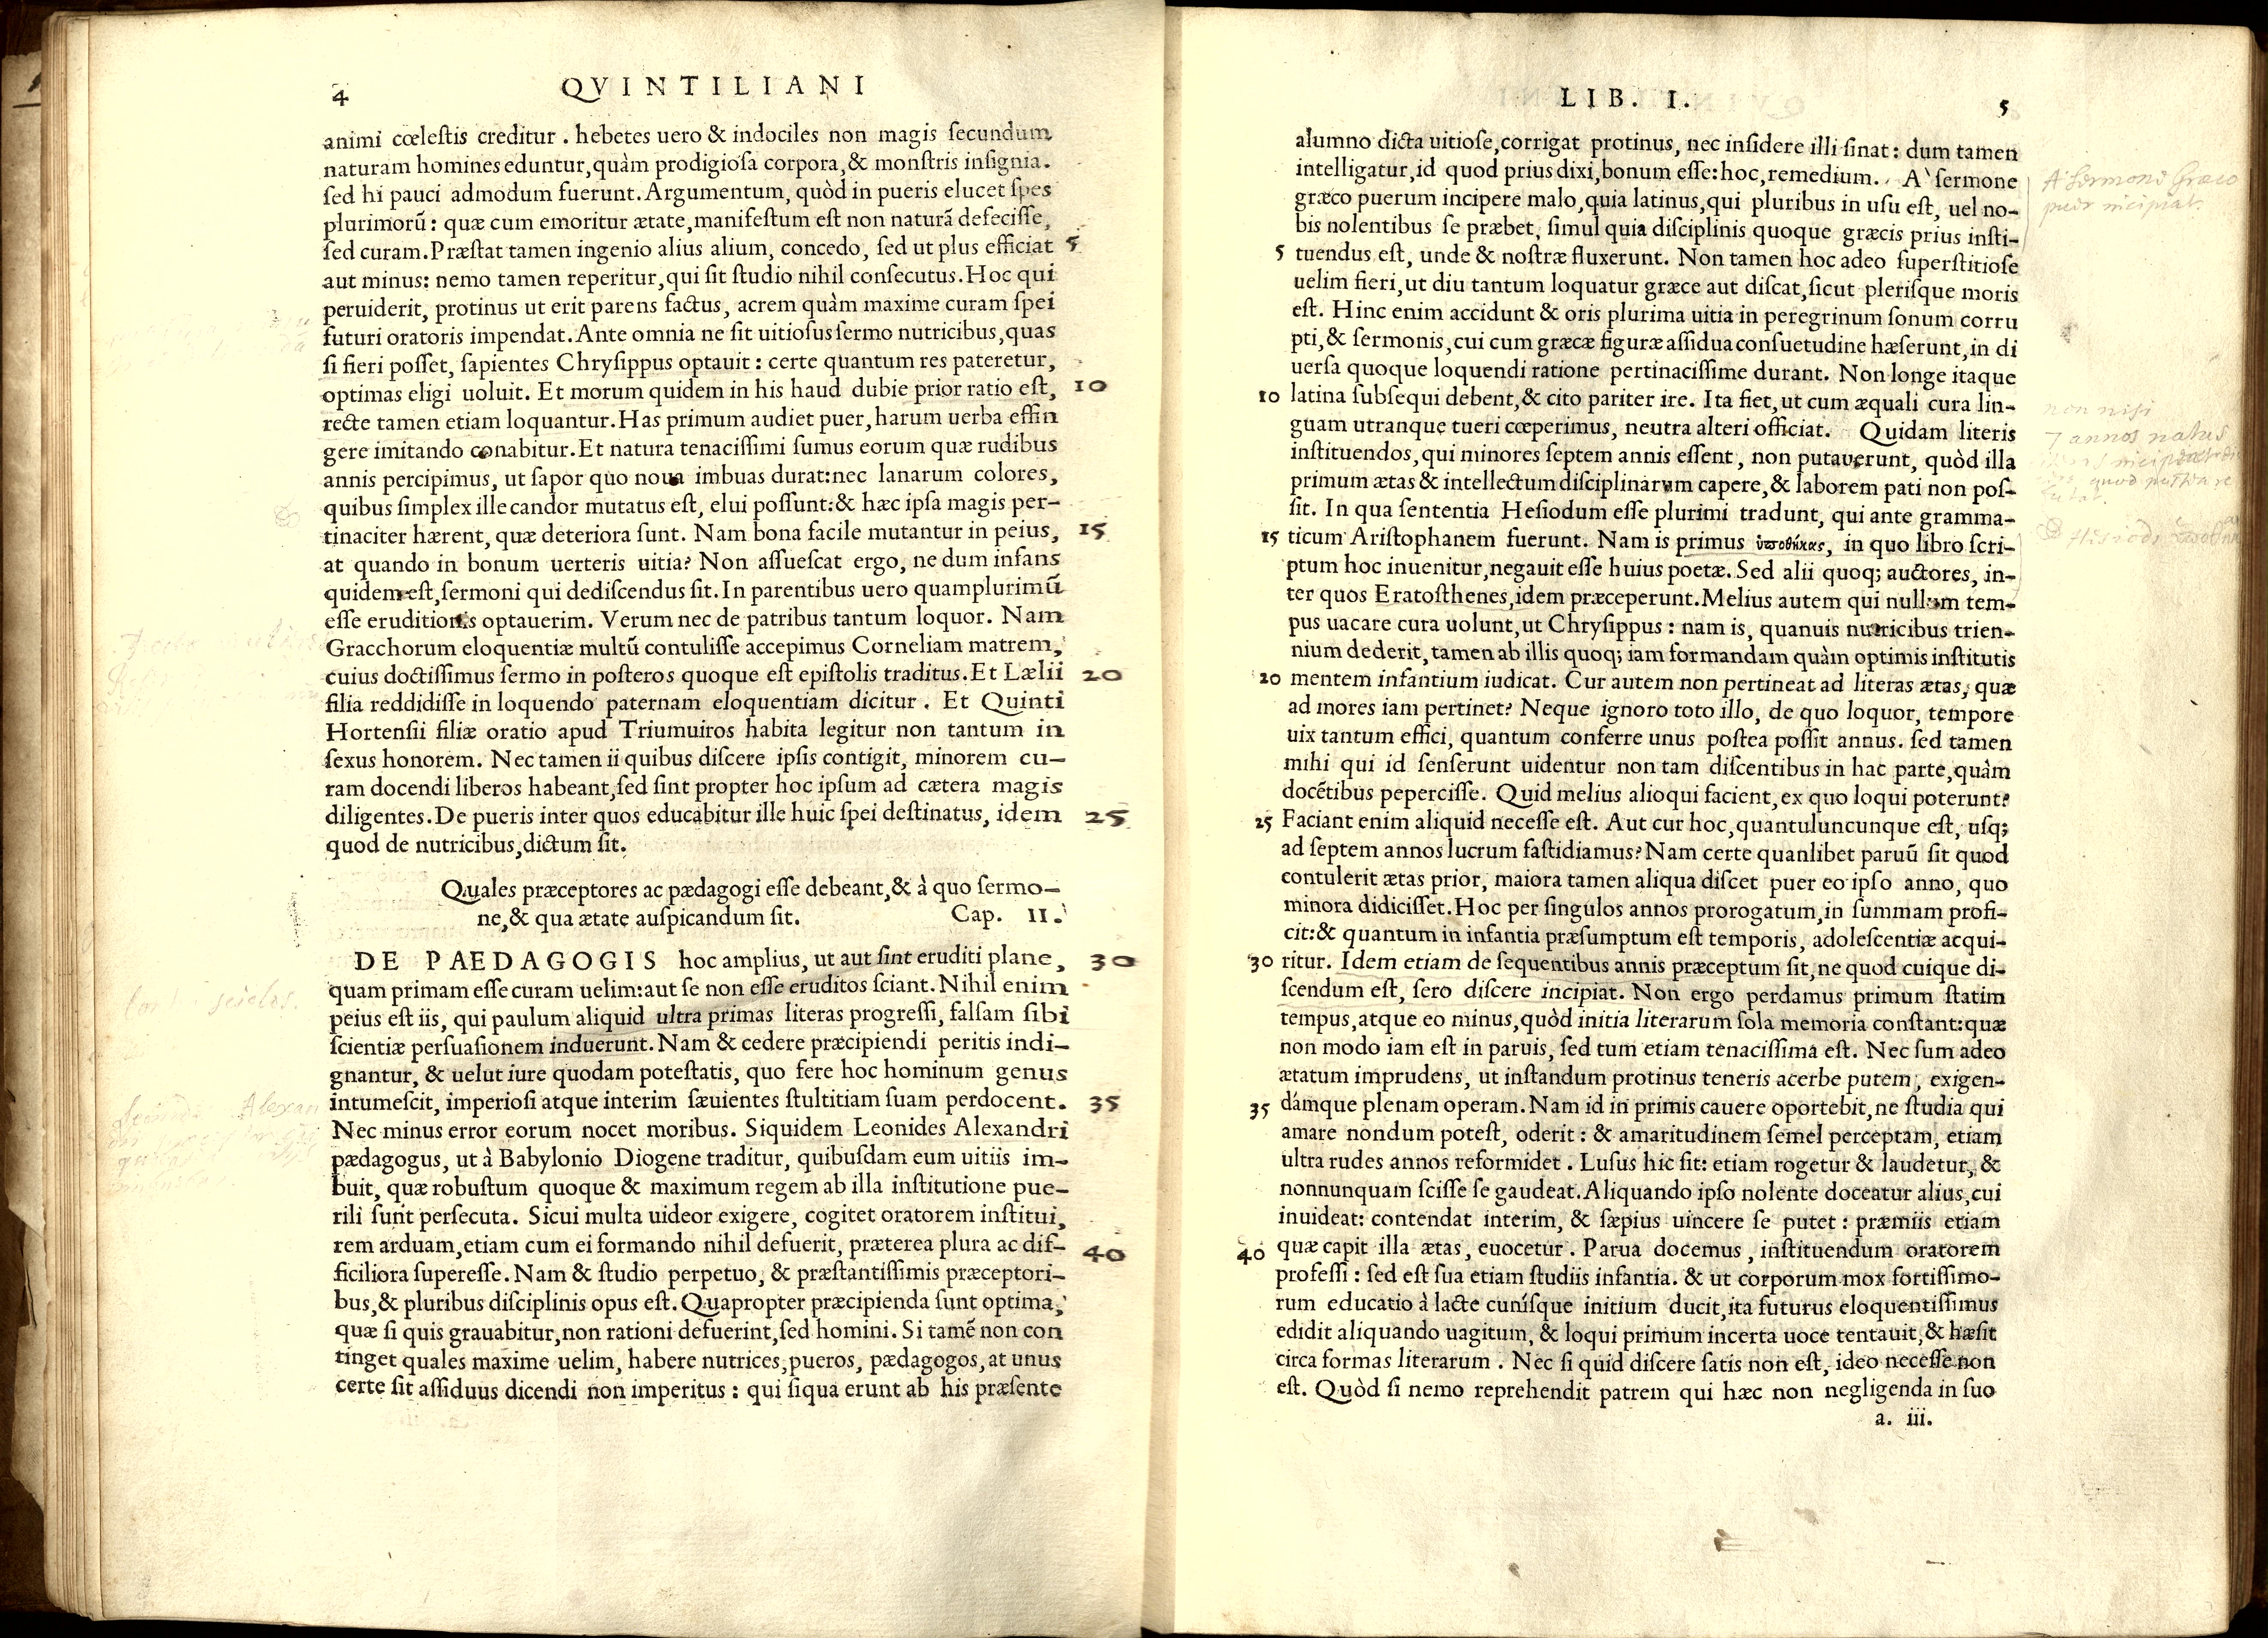 4 QVINTILIANI
animi cœlestis creditur . hebetes uero & indociles non magis secundum
naturam homines eduntur, quàm prodigiosa corpora, & monstris insignia.
sed hi pauci admodum fuerunt. Argumentum, quòd in pueris elucet spes
plurimorũ: quæ cum emoritur ætate, manifestum est non naturã defecisse,
sed curam. Præstat tamen ingenio alius alium, concedo, sed ut plus efficiat 5
aut minus: nemo tamen reperitur, qui sit studio nihil consecutus. Hoc qui
peruiderit, protinus ut erit parens factus, acrem quàm maxime curam spei
futuri oratoris impendat. Ante omnia ne sit uitiosus sermo nutricibus, quas
si fieri posset, sapientes Chrysippus optauit: certe quantum res pateretur,
optimas eligi uoluit. Et morum quidem in his haud dubie prior ratio est, 10
recte tamen etiam loquantur. Has primum audiet puer, harum uerba effin
gere imitando conabitur. Et natura tenacissimi sumus eorum quæ rudibus
annis percipimus, ut sapor quo noua imbuas durat: nec lanarum colores,
quibus simplex ille candor mutatus est, elui possunt: & hæc ipsa magis per-
tinaciter hærent, quæ deteriora sunt. Nam bona facile mutantur in peius, 15
at quando in bonum uerteris uitia? Non assuescat ergo, ne dum infans
quidem est, sermoni qui dediscendus sit. In parentibus uero quamplurimũ
esse eruditionis optauerim. Verum nec de patribus tantum loquor. Nam
Gracchorum eloquentiæ multũ contulisse accepimus Corneliam matrem,
cuius doctissimus sermo in posteros quoque est epistolis traditus. Et Lælii 20
filia reddidisse in loquendo paternam eloquentiam dicitur . Et Quinti
Hortensii filiæ oratio apud Triumuiros habita legitur non tantum in
sexus honorem. Nec tamen ii quibus discere ipsis contigit, minorem cu-
ram docendi liberos habeant, sed sint propter hoc ipsum ad cætera magis
diligentes. De pueris inter quos educabitur ille huic spei destinatus, idem 25
quod de nutricibus, dictum sit.
Quales præceptores ac pædagogi esse debeant, & à quo sermo-
ne, & qua ætate auspicandum sit. Cap. II.
DE PAEDAGOGIS hoc amplius, ut aut sint eruditi plane, 30
quam primam esse curam uelim: aut se non esse eruditos sciant. Nihil enim
peius est iis, qui paulum aliquid ultra primas literas progressi, falsam sibi
scientiæ persuasionem induerunt. Nam & cedere præcipiendi peritis indi-
gnantur, & uelut iure quodam potestatis, quo fere hoc hominum genus
intumescit, imperiosi atque interim sæuientes stultitiam suam perdocent. 35
Nec minus error eorum nocet moribus. Siquidem Leonides Alexandri
pædagogus, ut à Babylonio Diogene traditur, quibusdam eum uitiis im-
buit, quæ robustum quoque & maximum regem ab illa institutione pue-
rili sunt persecuta. Sicui multa uideor exigere, cogitet oratorem institui,
rem arduam, etiam cum ei formando nihil defuerit, præterea plura ac dif- 40
ficiliora superesse. Nam & studio perpetuo, & præstantissimis præceptori-
bus, & pluribus disciplinis opus est. Quapropter præcipienda sunt optima,
quæ si quis grauabitur, non rationi defuerint, sed homini. Si tamẽ non con
tinget quales maxime uelim, habere nutrices, pueros, pædagogos, at unus
certe sit assiduus dicendi non imperitus : qui siqua erunt ab his præsente
LIB. I. 5
alumno dicta uitiose, corrigat protinus, nec insidere illi sinat: dum tamen
intelligatur, id quod prius dixi, bonum esse: hoc, remedium. A` sermone
græco puerum incipere malo, quia latinus, qui pluribus in usu est, uel no-
bis nolentibus se præbet, simul quia disciplinis quoque græcis prius insti-
5 tuendus est, unde & nostræ fluxerunt. Non tamen hoc adeo superstitiose
uelim fieri, ut diu tantum loquatur græce aut discat, sicut plerisque moris
est. Hinc enim accidunt & oris plurima uitia in peregrinum sonum corru
pti, & sermonis, cui cum græcæ figuræ assidua consuetudine hæserunt, in di
uersa quoque loquendi ratione pertinacissime durant. Non longe itaque
10 latina subsequi debent, & cito pariter ire. Ita fiet, ut cum æquali cura lin-
guam utranque tueri cœperimus, neutra alteri officiat. Quidam literis
instituendos, qui minores septem annis essent, non putauerunt, quòd illa
primum ætas & intellectum disciplinarum capere, & laborem pati non pos-
sit. In qua sententia Hesiodum esse plurimi tradunt, qui ante gramma-
15 ticum Aristophanem fuerunt. Nam is primus ὑποθήκας, in quo libro scri-
ptum hoc inuenitur, negauit esse huius poetæ. Sed alii quoq; auctores, in-
ter quos Eratosthenes, idem præceperunt. Melius autem qui nullum tem-
pus uacare cura uolunt, ut Chrysippus : nam is, quanuis nutricibus trien-
nium dederit, tamen ab illis quoq; iam formandam quàm optimis institutis
20 mentem infantium iudicat. Cur autem non pertineat ad literas ætas, quæ
ad mores iam pertinet? Neque ignoro toto illo, de quo loquor, tempore
uix tantum effici, quantum conferre unus postea possit annus. sed tamen
mihi qui id senserunt uidentur non tam discentibus in hac parte, quàm
docẽtibus pepercisse. Quid melius alioqui facient, ex quo loqui poterunt?
25 Faciant enim aliquid necesse est. Aut cur hoc, quantuluncunque est, usq;
ad septem annos lucrum fastidiamus? Nam certe quanlibet paruũ sit quod
contulerit ætas prior, maiora tamen aliqua discet puer eo ipso anno, quo
minora didicisset. Hoc per singulos annos prorogatum, in summam profi-
cit: & quantum in infantia præsumptum est temporis, adolescentiæ acqui-
30 ritur. Idem etiam de sequentibus annis præceptum sit, ne quod cuique di-
scendum est, sero discere incipiat. Non ergo perdamus primum statim
tempus, atque eo minus, quòd initia literarum sola memoria constant: quæ
non modo iam est in paruis, sed tum etiam tenacissima est. Nec sum adeo
ætatum imprudens, ut instandum protinus teneris acerbe putem, exigen-
35 dámque plenam operam. Nam id in primis cauere oportebit, ne studia qui
amare nondum potest, oderit : & amaritudinem semel perceptam, etiam
ultra rudes annos reformidet . Lusus hic sit: etiam rogetur & laudetur, &
nonnunquam scisse se gaudeat. Aliquando ipso nolente doceatur alius, cui
inuideat: contendat interim, & sæpius uincere se putet : præmiis etiam
40 quæ capit illa ætas, euocetur . Parua docemus , instituendum oratorem
professi : sed est sua etiam studiis infantia. & ut corporum mox fortissimo-
rum educatio à lacte cunísque initium ducit, ita futurus eloquentissimus
edidit aliquando uagitum, & loqui primum incerta uoce tentauit, & hæsit
circa formas literarum . Nec si quid discere satis non est, ideo necesse non
est. Quòd si nemo reprehendit patrem qui hæc non negligenda in suo
a. iii.
A' sermone Græco
puer incipiat.
non nisi
7 annos natus